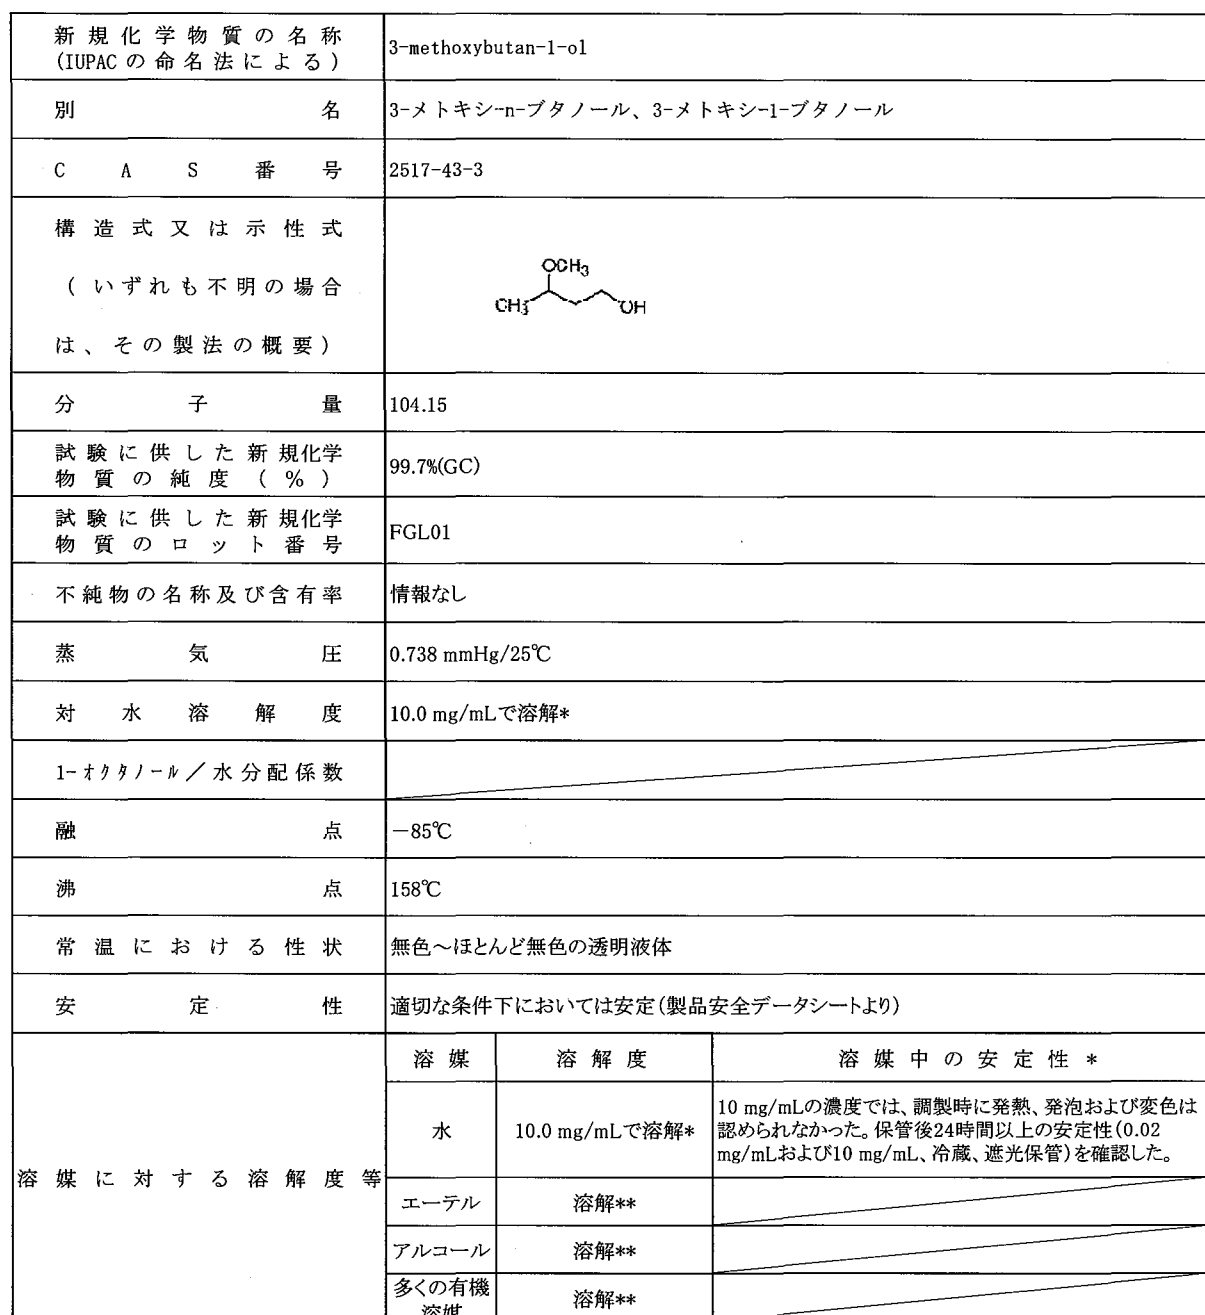 新規化学物質の名称
(IUPACの命名法による)
3-methoxybutan-1-ol
別名
3-メトキシ-n-ブタノール、3-メトキシ-1-ブタノール
CAS番号
2517-43-3
構造式又は示性式
(いずれも不明の場合
は、その製法の概要)
OCH3
CH3
OH
分子量
104.15
試験に供した新規化学
物質の純度(%)
99.7%(GC)
試験に供した新規化学
物質のロット番号
FGL01
不純物の名称及び含有率
情報なし
蒸気圧
0.738 mmHg/25℃
対水溶解度
10.0 mg/mLで溶解*
1-オクタノール/水分配係数
融点
-85℃
沸点
158℃
常温における性状
無色~ほとんど無色の透明液体
安定性
適切な条件下においては安定(製品安全データシートより)
溶媒に対する溶解度等
溶媒
溶解度
溶媒中の安定性*
水
10.0 mg/mLで溶解*
10 mg/mLの濃度では、調製時に発熱、発泡および変色は
認められなかった。保管後24時間以上の安定性(0.02
mg/mLおよび10 mg/mL、冷蔵、遮光保管)を確認した。
エーテル
溶解**
アルコール
溶解**
多くの有機
溶媒
溶解**